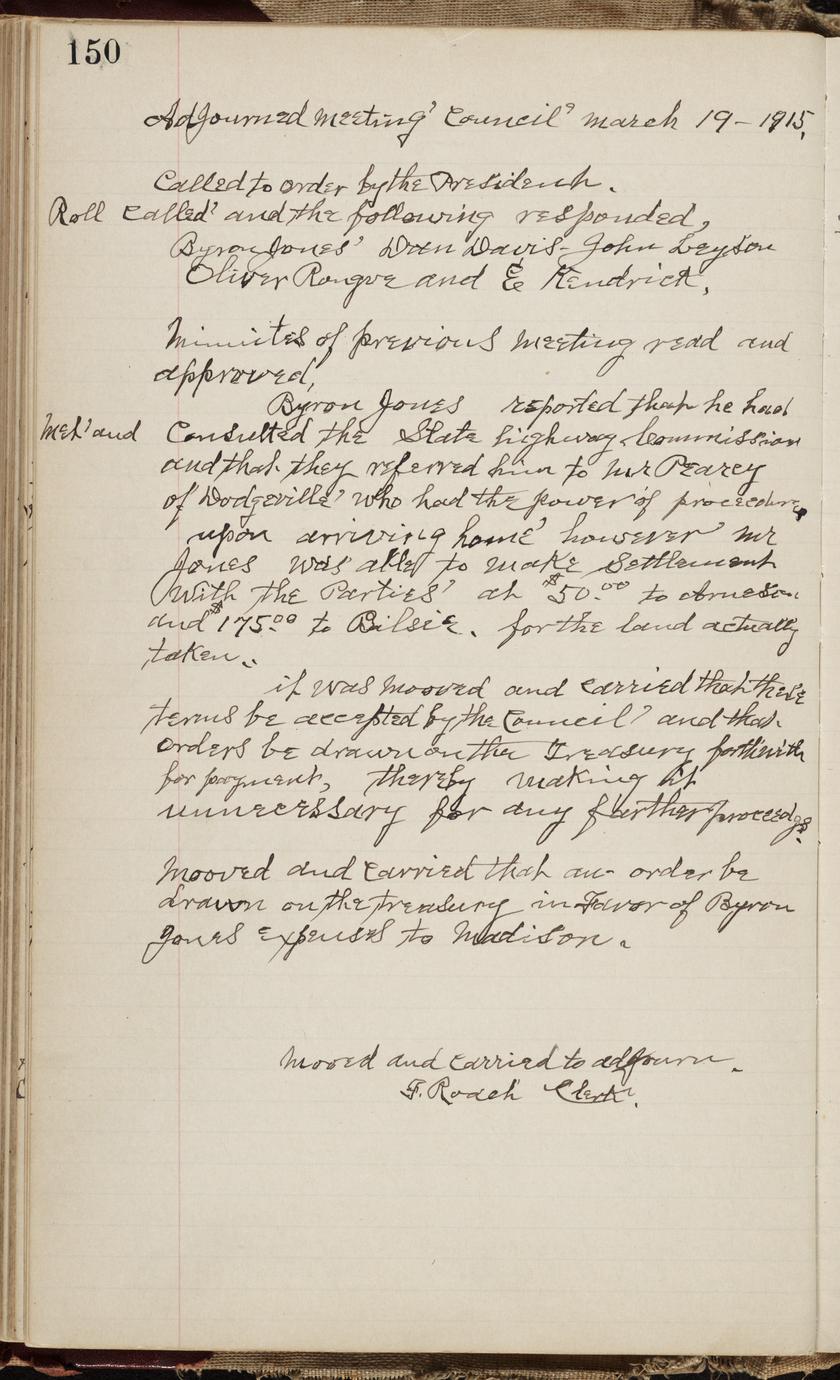 150
Adjourned meeting' Council' march 19 - 1915,
Called to order by the President.
Roll called' and the following responded,
Byron Jones' Dan Davis - John Leyson
Oliver Rongve and E Kendrick,
Minuites of previous meeting read and
approved,
Byron Jones reported that he had
Met' and Consulted the State highway Commission
and that they referred him to Mr Pearcy
of Dodgeville' who had the power of proceedure
upon arriving home' however' mr
Jones was able to make Settlement
With the Parties' at $50.00 to Arneson
and $175.00 to Bilsie. for the land actually
taken.
it was mooved and carried that these
terms be accepted by the Council' and that
orders be drawn on the Treasury forthwith
for payment, thereby making it
unnecessary for any further proceedgs.
Mooved and carried that an order be
drawn on the treasury in Favor of Byron
Jones expenses to Madison.
Mooved and carried to adjourn.
F. Roach Clerk.